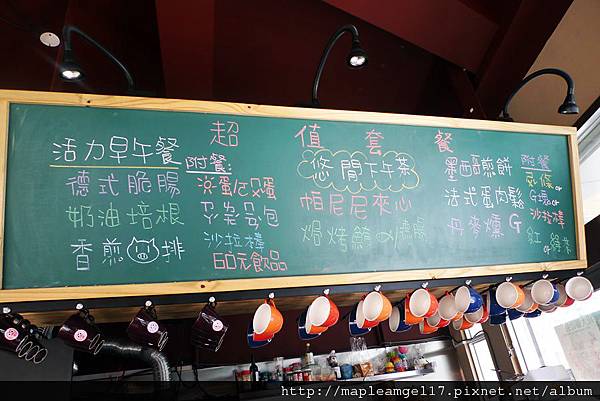 超值套餐
活力早午餐
附餐:
德式脆腸
奶油培根
香煎 排
沙拉棒
60元飲品
悠閒下午茶
帕尼尼夾心
焗烤
墨西哥煎餅
法式蛋肉鬆
丹麥燻G
附餐
薯條or
沙拉棒
紅or綠茶
http://mapleangel17.pixnet.net/album